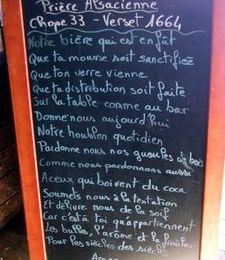 Prière Alsacienne
Chope 33 - Verset 1664
Notre bière qui est en fût
Que ta mousse soit sanctifiée
Que ton verre vienne
Que ta distribution soit faite
Sur la table comme au bar
Donne nous aujourd'hui
Notre houblon quotidien
Pardonne nous nos gueules de bois
Comme nous pardonnons aussi
A ceux qui boivent du coca
Soumets nous à la tentation
Et délivre nous de la soif
Car c'est à toi qu'appartiennent
Les bulles, l'arôme et la fraîcheur
Pour les siècles des siècles